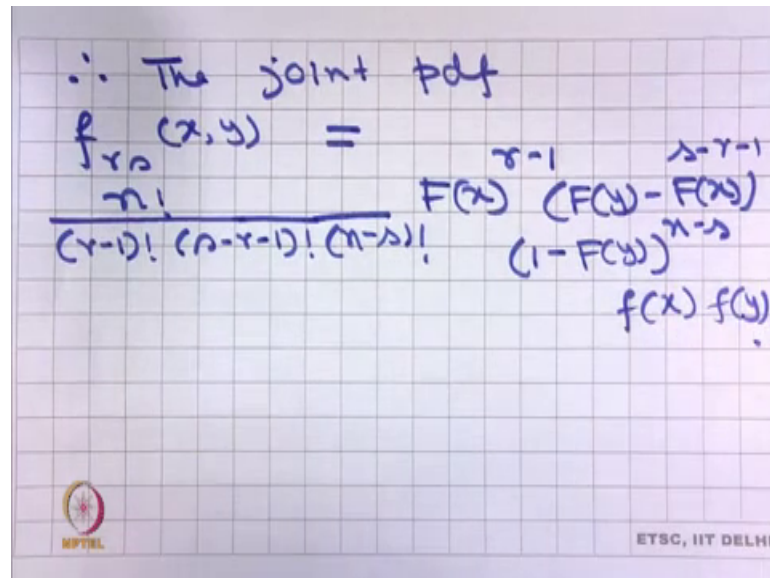 ∴ The joint pdf
f_{rs} (x,y) =
n! / (r-1)! (s-r-1)! (n-s)! F(x)^{r-1} (F(y) - F(x))^{s-r-1}
(1 - F(y))^{n-s}
f(x) f(y).
NPTEL
ETSC, IIT DELHI